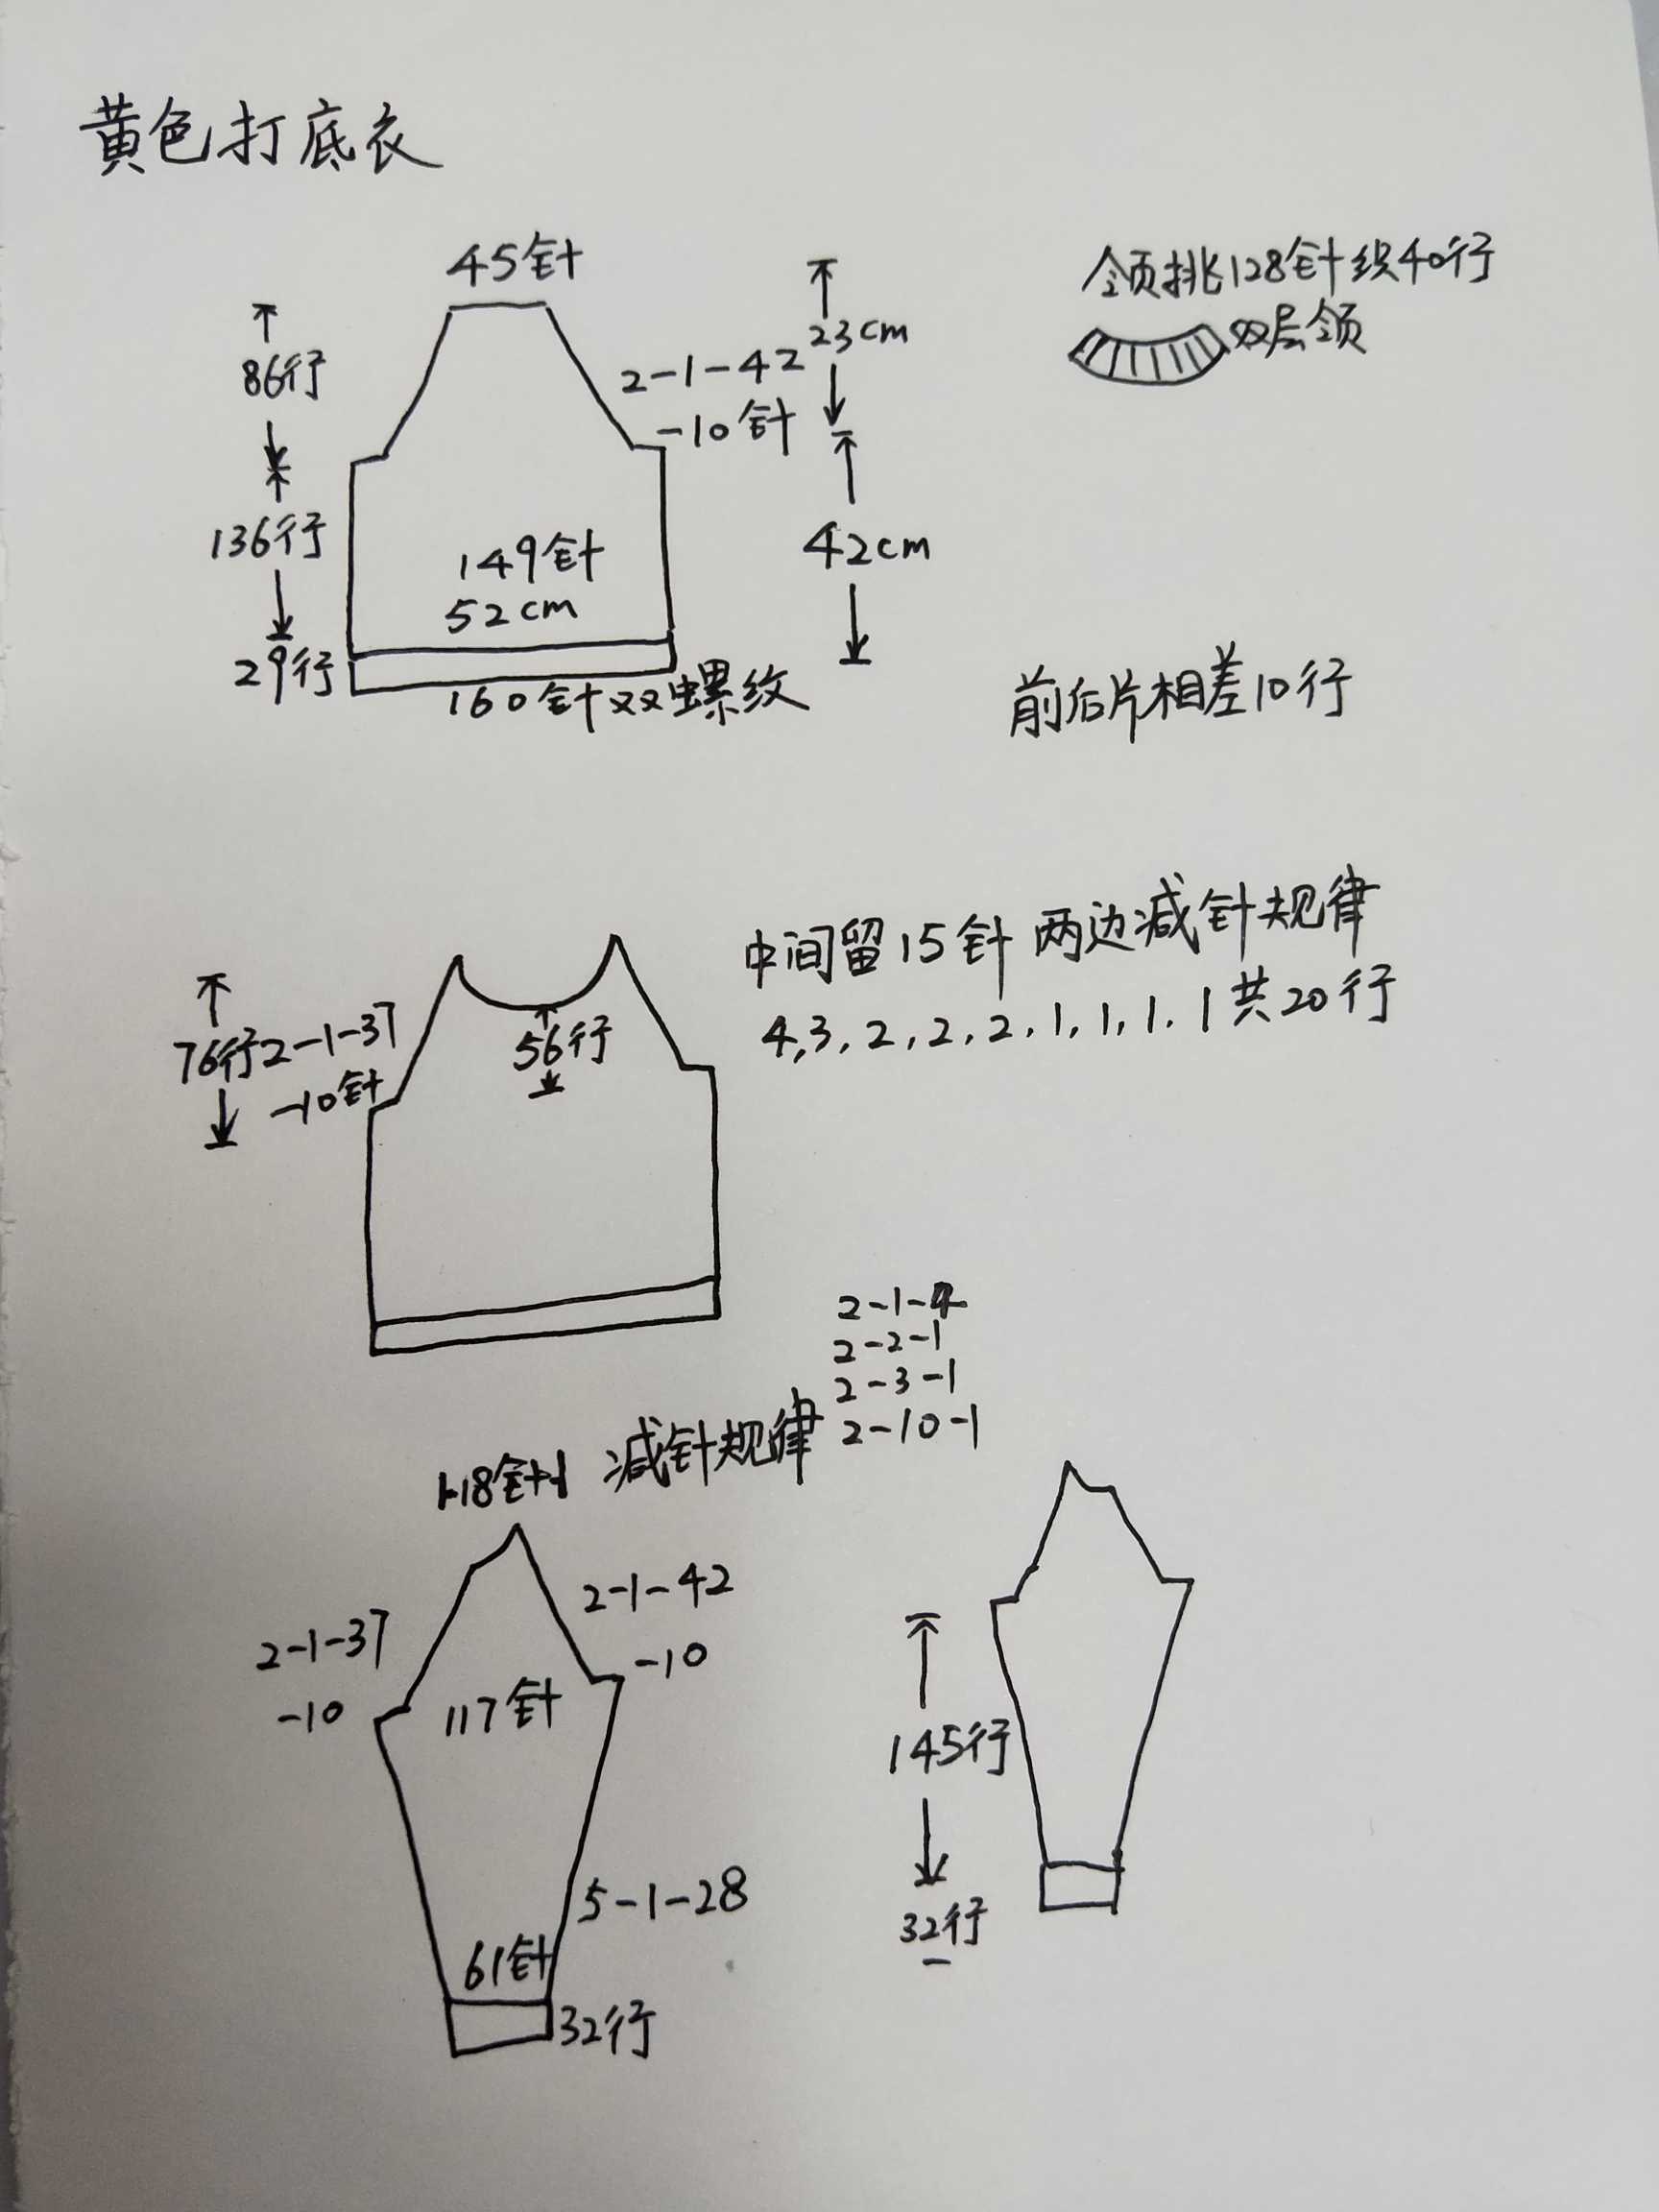 黄色打底衣
45针
领挑128针织40行
双层领
86行
23cm
2-1-42
-10针
136行
42cm
149针
52cm
29行
160针双螺纹
前后片相差10行
中间留15针 两边减针规律
4,3,2,2,2,1,1,1,1共20行
76行
2-1-37
-10针
56行
2-1-4
2-2-1
2-3-1
2-10-1
18针
减针规律
2-1-42
-10
2-1-37
-10
117针
145行
5-1-28
61针
32行
32行